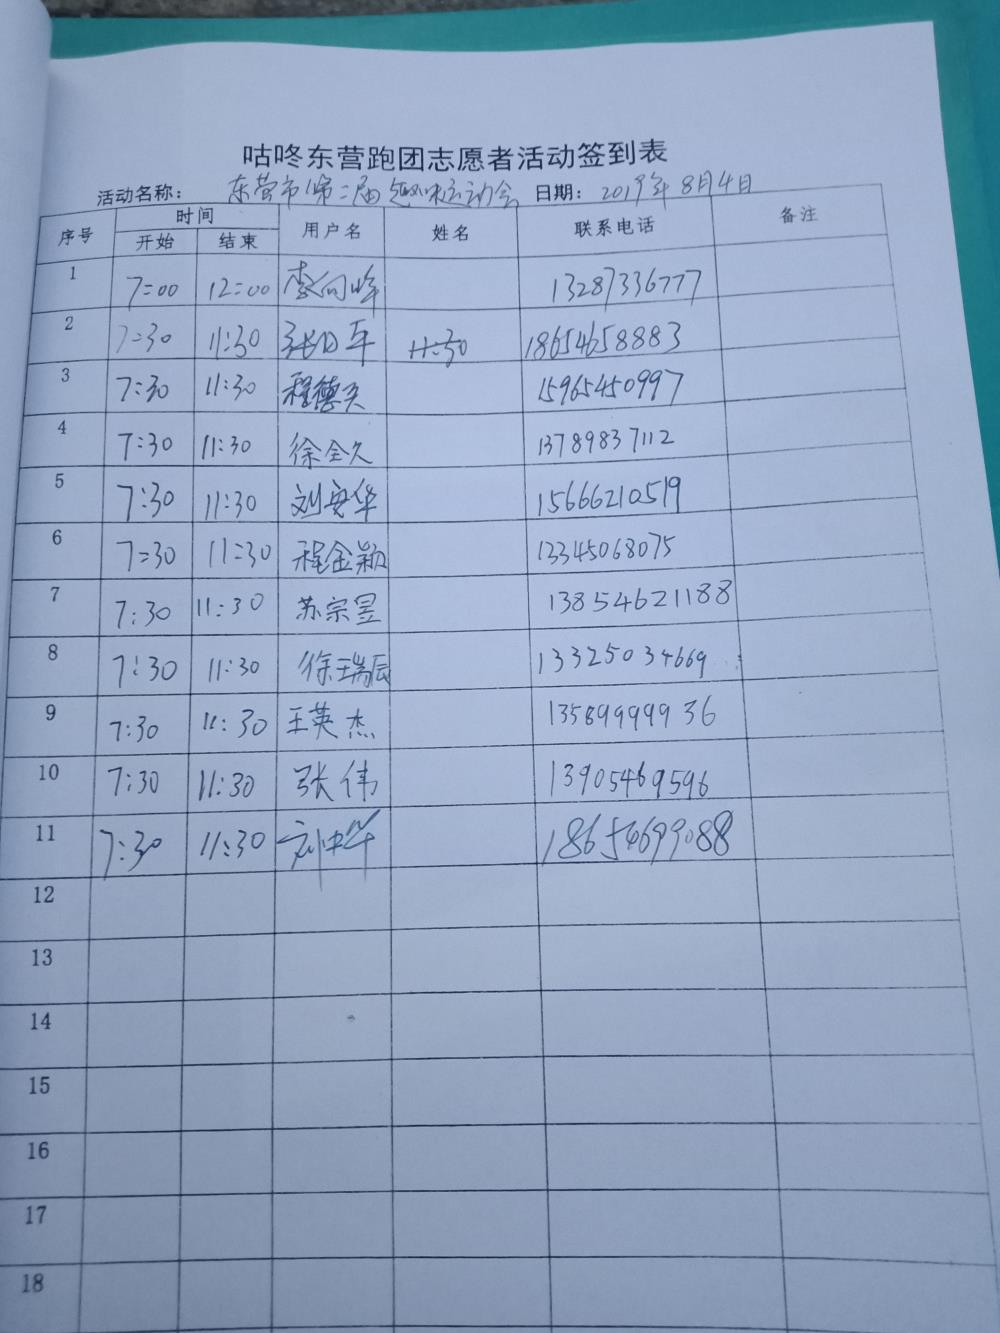 咕咚东营跑团志愿者活动签到表
活动名称： 东营市第二届趣味运动会 日期： 2019年8月4日
序号 时间 用户名 姓名 联系电话 备注
开始 结束
1 7:00 12:00 李向 13287336777
2 7:30 11:30 11:30 18654658883
3 7:30 11:30 程德 15965450997
4 7:30 11:30 徐全久 13789837112
5 7:30 11:30 刘安华 15666210519
6 7:30 11:30 程金颖 13345068075
7 7:30 11:30 苏宗昱 13854621188
8 7:30 11:30 徐瑞辰 13325034669
9 7:30 11:30 王英杰 13589999936
10 7:30 11:30 张伟 13905469596
11 7:30 11:30 刘中华 18654699088
12
13
14
15
16
17
18